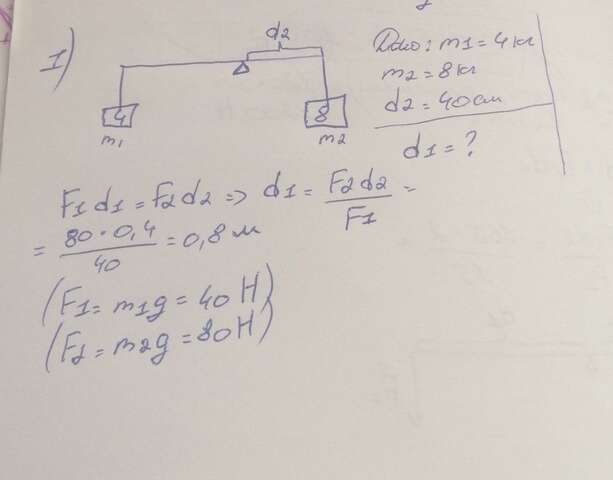 1)
d2
4
8
m1
m2
Дано: m1 = 4 кг
m2 = 8 кг
d2 = 40 см
d1 = ?
F1 d1 = F2 d2 => d1 = F2 d2 / F1 =
= 80 · 0,4 / 40 = 0,8 м
(F1 = m1g = 40 H)
(F2 = m2g = 80 H)